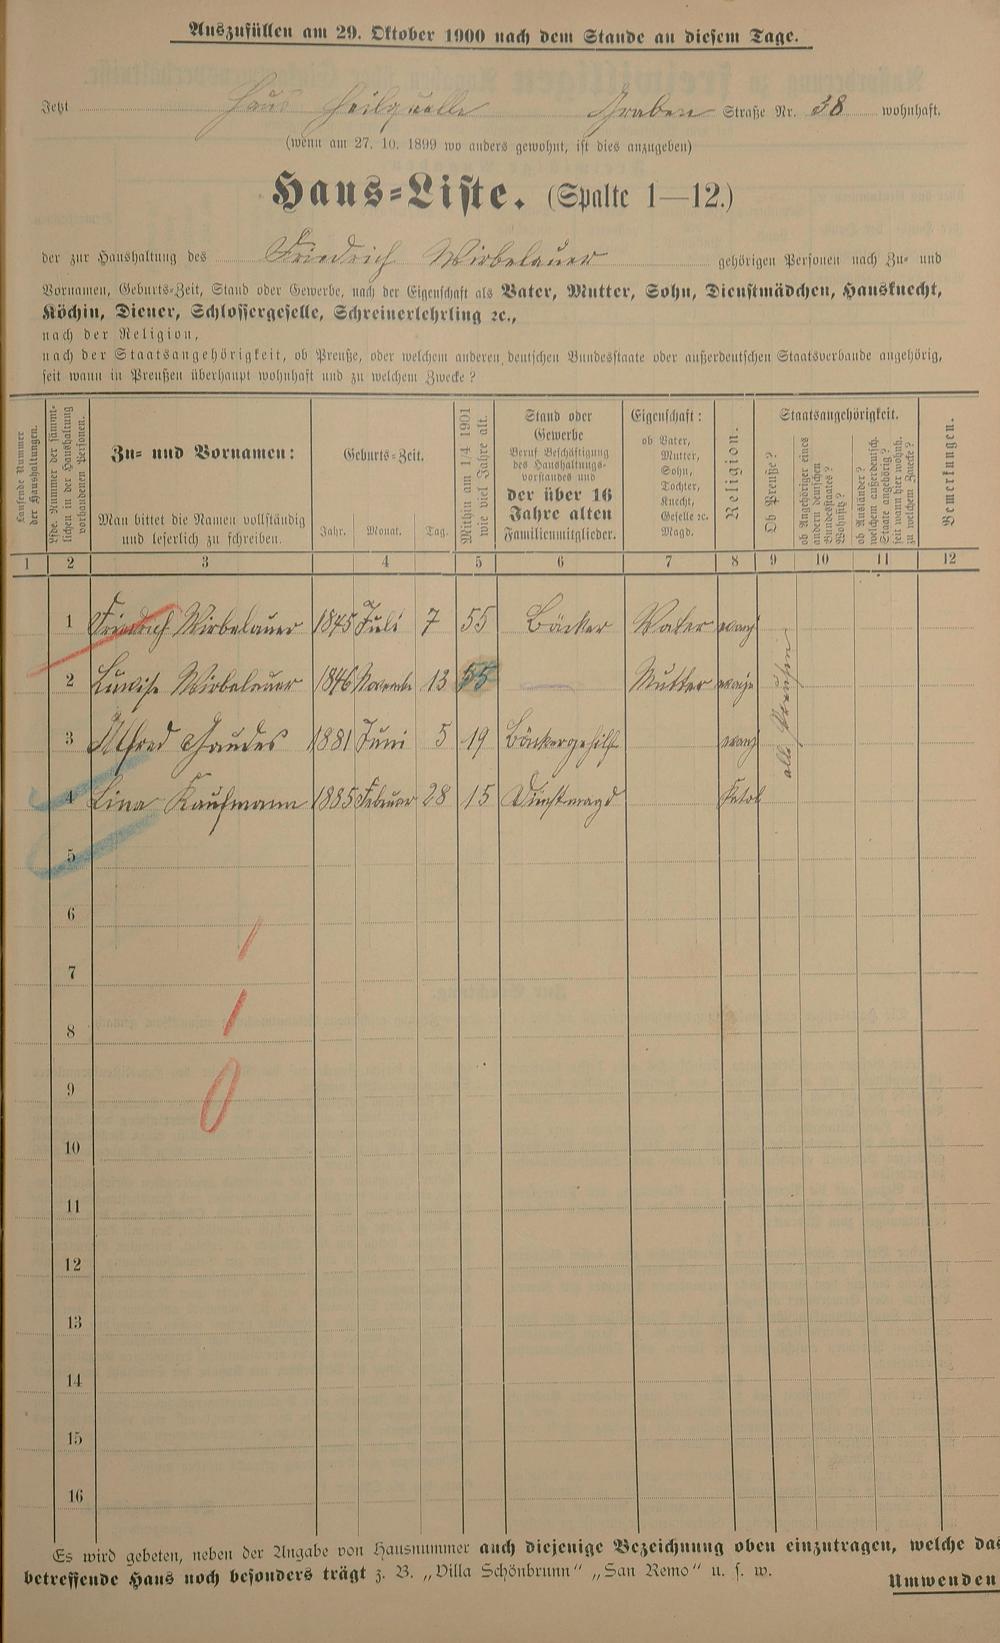 Auszufüllen am 29. Oktober 1900 nach dem Stande an diesem Tage.
Jetzt Haus Heilquelle Graben Straße Nr. 38 wohnhaft.
(wenn am 27. 10. 1899 wo anders gewohnt, ist dies anzugeben)
Haus-Liste. (Spalte 1—12.)
der zur Haushaltung des Friedrich Wirbelauer gehörigen Personen nach Zu- und
Vornamen, Geburts-Zeit, Stand oder Gewerbe, nach der Eigenschaft als Vater, Mutter, Sohn, Dienstmädchen, Hausknecht,
Köchin, Diener, Schlossergeselle, Schreinerlehrling ꝛc.,
nach der Religion,
nach der Staatsangehörigkeit, ob Preuße, oder welchem anderen deutschen Bundesstaate oder außerdeutschen Staatsverbande angehörig,
seit wann in Preußen überhaupt wohnhaft und zu welchem Zwecke?
Laufende Nummer
der Haushaltungen.
Lfde. Nummer der sämmt-
lichen in der Haushaltung
vorhandenen Personen.
Zu- und Vornamen:
Man bittet die Namen vollständig
und leserlich zu schreiben.
Geburts-Zeit.
Jahr. Monat. Tag.
Mithin am 1/4 1901
wie viel Jahre alt.
Stand oder
Gewerbe
Beruf Beschäftigung
des Haushaltungs-
vorstandes und
der über 16
Jahre alten
Familienmitglieder.
Eigenschaft:
ob Vater,
Mutter,
Sohn,
Tochter,
Knecht,
Geselle ꝛc.
Magd.
Religion.
Staatsangehörigkeit.
Ob Preuße?
ob Angehöriger eines
andern deutschen
Bundesstaates?
Wohnsitz?
ob Ausländer?
welchem außerdeutsch.
Staate angehörig?
seit wann hier wohnh.
zu welchem Zwecke?
Bemerkungen.
1 2 3 4 5 6 7 8 9 10 11 12
1 Friedrich Wirbelauer 1845 Juli 7 55 Bäcker Vater evang
2 Luwise Wirbelauer 1846 Novembe 13 55 — Mutter evange
3 Alfred Gaudes 1881 Juni 5 19 Bäckergehilf evang
4 Lina Kaufmann 1885 Februar 28 15 Dienstmagd Katol
alle Preußen
5
6
7
8
9
10
11
12
13
14
15
16
Es wird gebeten, neben der Angabe von Hausnummer auch diejenige Bezeichnung oben einzutragen, welche das
betreffende Haus noch besonders trägt z. B. „Villa Schönbrunn“ „San Remo“ u. s. w.
Umwenden